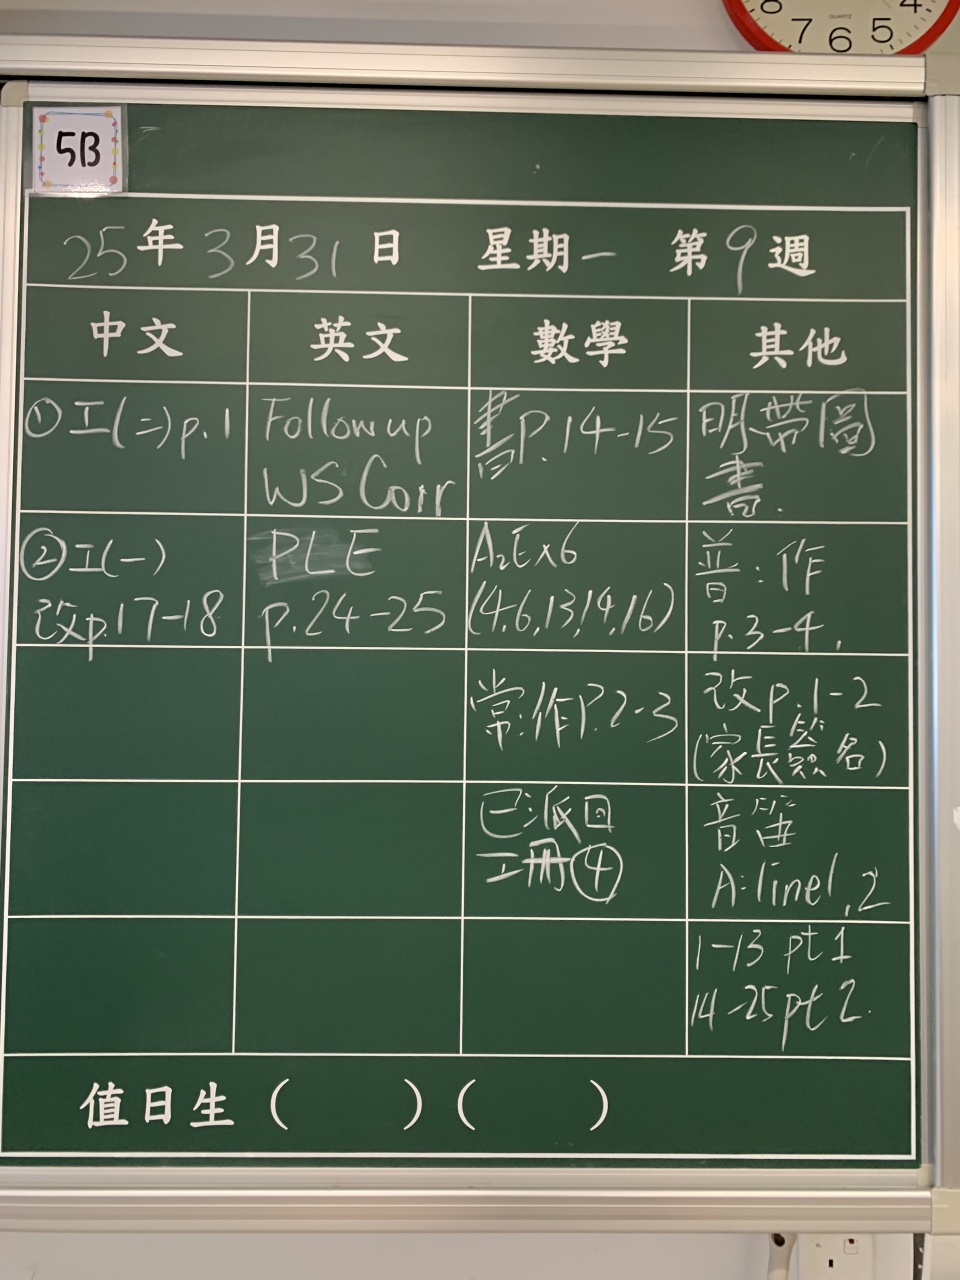 8
4
7
6
5
QUARTZ
5B
25年3月31日 星期一 第9週
中文
英文
數學
其他
①工(二)p.1
Follow up
WS Corr
書P.14-15
明帶圖
書.
②工(一)
改p.17-18
PLE
p.24-25
A₂Ex6
(4,6,13,14,16)
普:作
p.3-4.
常:作P.2-3
改p.1-2
(家長簽名)
已派回
工冊④
音笛
A:line1,2
1-13 pt 1
14-25 pt 2.
值日生 (    ) (    )